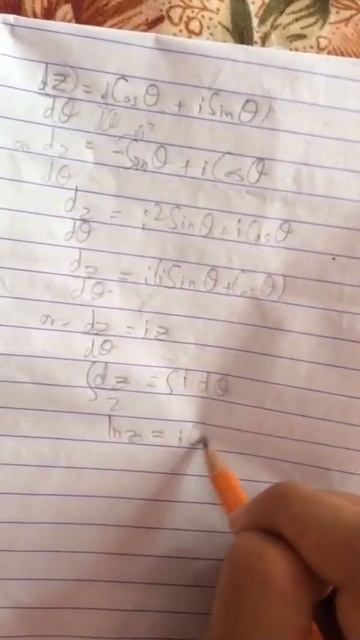 dz/dθ = d(Cosθ + iSinθ)/dθ
or dz/dθ = -Sinθ + iCosθ
dz/dθ = i²Sinθ + iCosθ
dz/dθ = i(iSinθ + Cosθ)
or dz/dθ = iz
∫dz/z = ∫i dθ
ln z = i